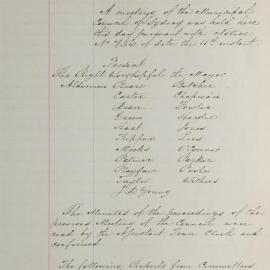 A meeting of the Municipal
Council of Sydney was held here
this day pursuant with Notice
No 7/36 of date the 11th instant
Present
The Right Worshipful the Mayor
Aldermen Beare Butcher
Carter Chapman
Dean Fowler
Green Hardie
Hart Jones
Lees
Meeks O'Connor
Palmer Parker
Playfair Poole
Taylor Withers
J. D. Young
The Minutes of the proceedings of the
previous Meeting of the Council were
read by the Assistant Town Clerk and
confirmed
The following Reports from Committees